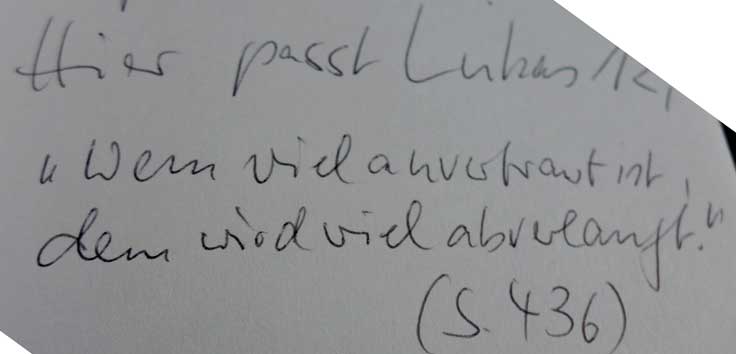 Hier passt Lukas 12,
"Wem viel anvertraut ist,
dem wird viel abverlangt."
(S. 436)